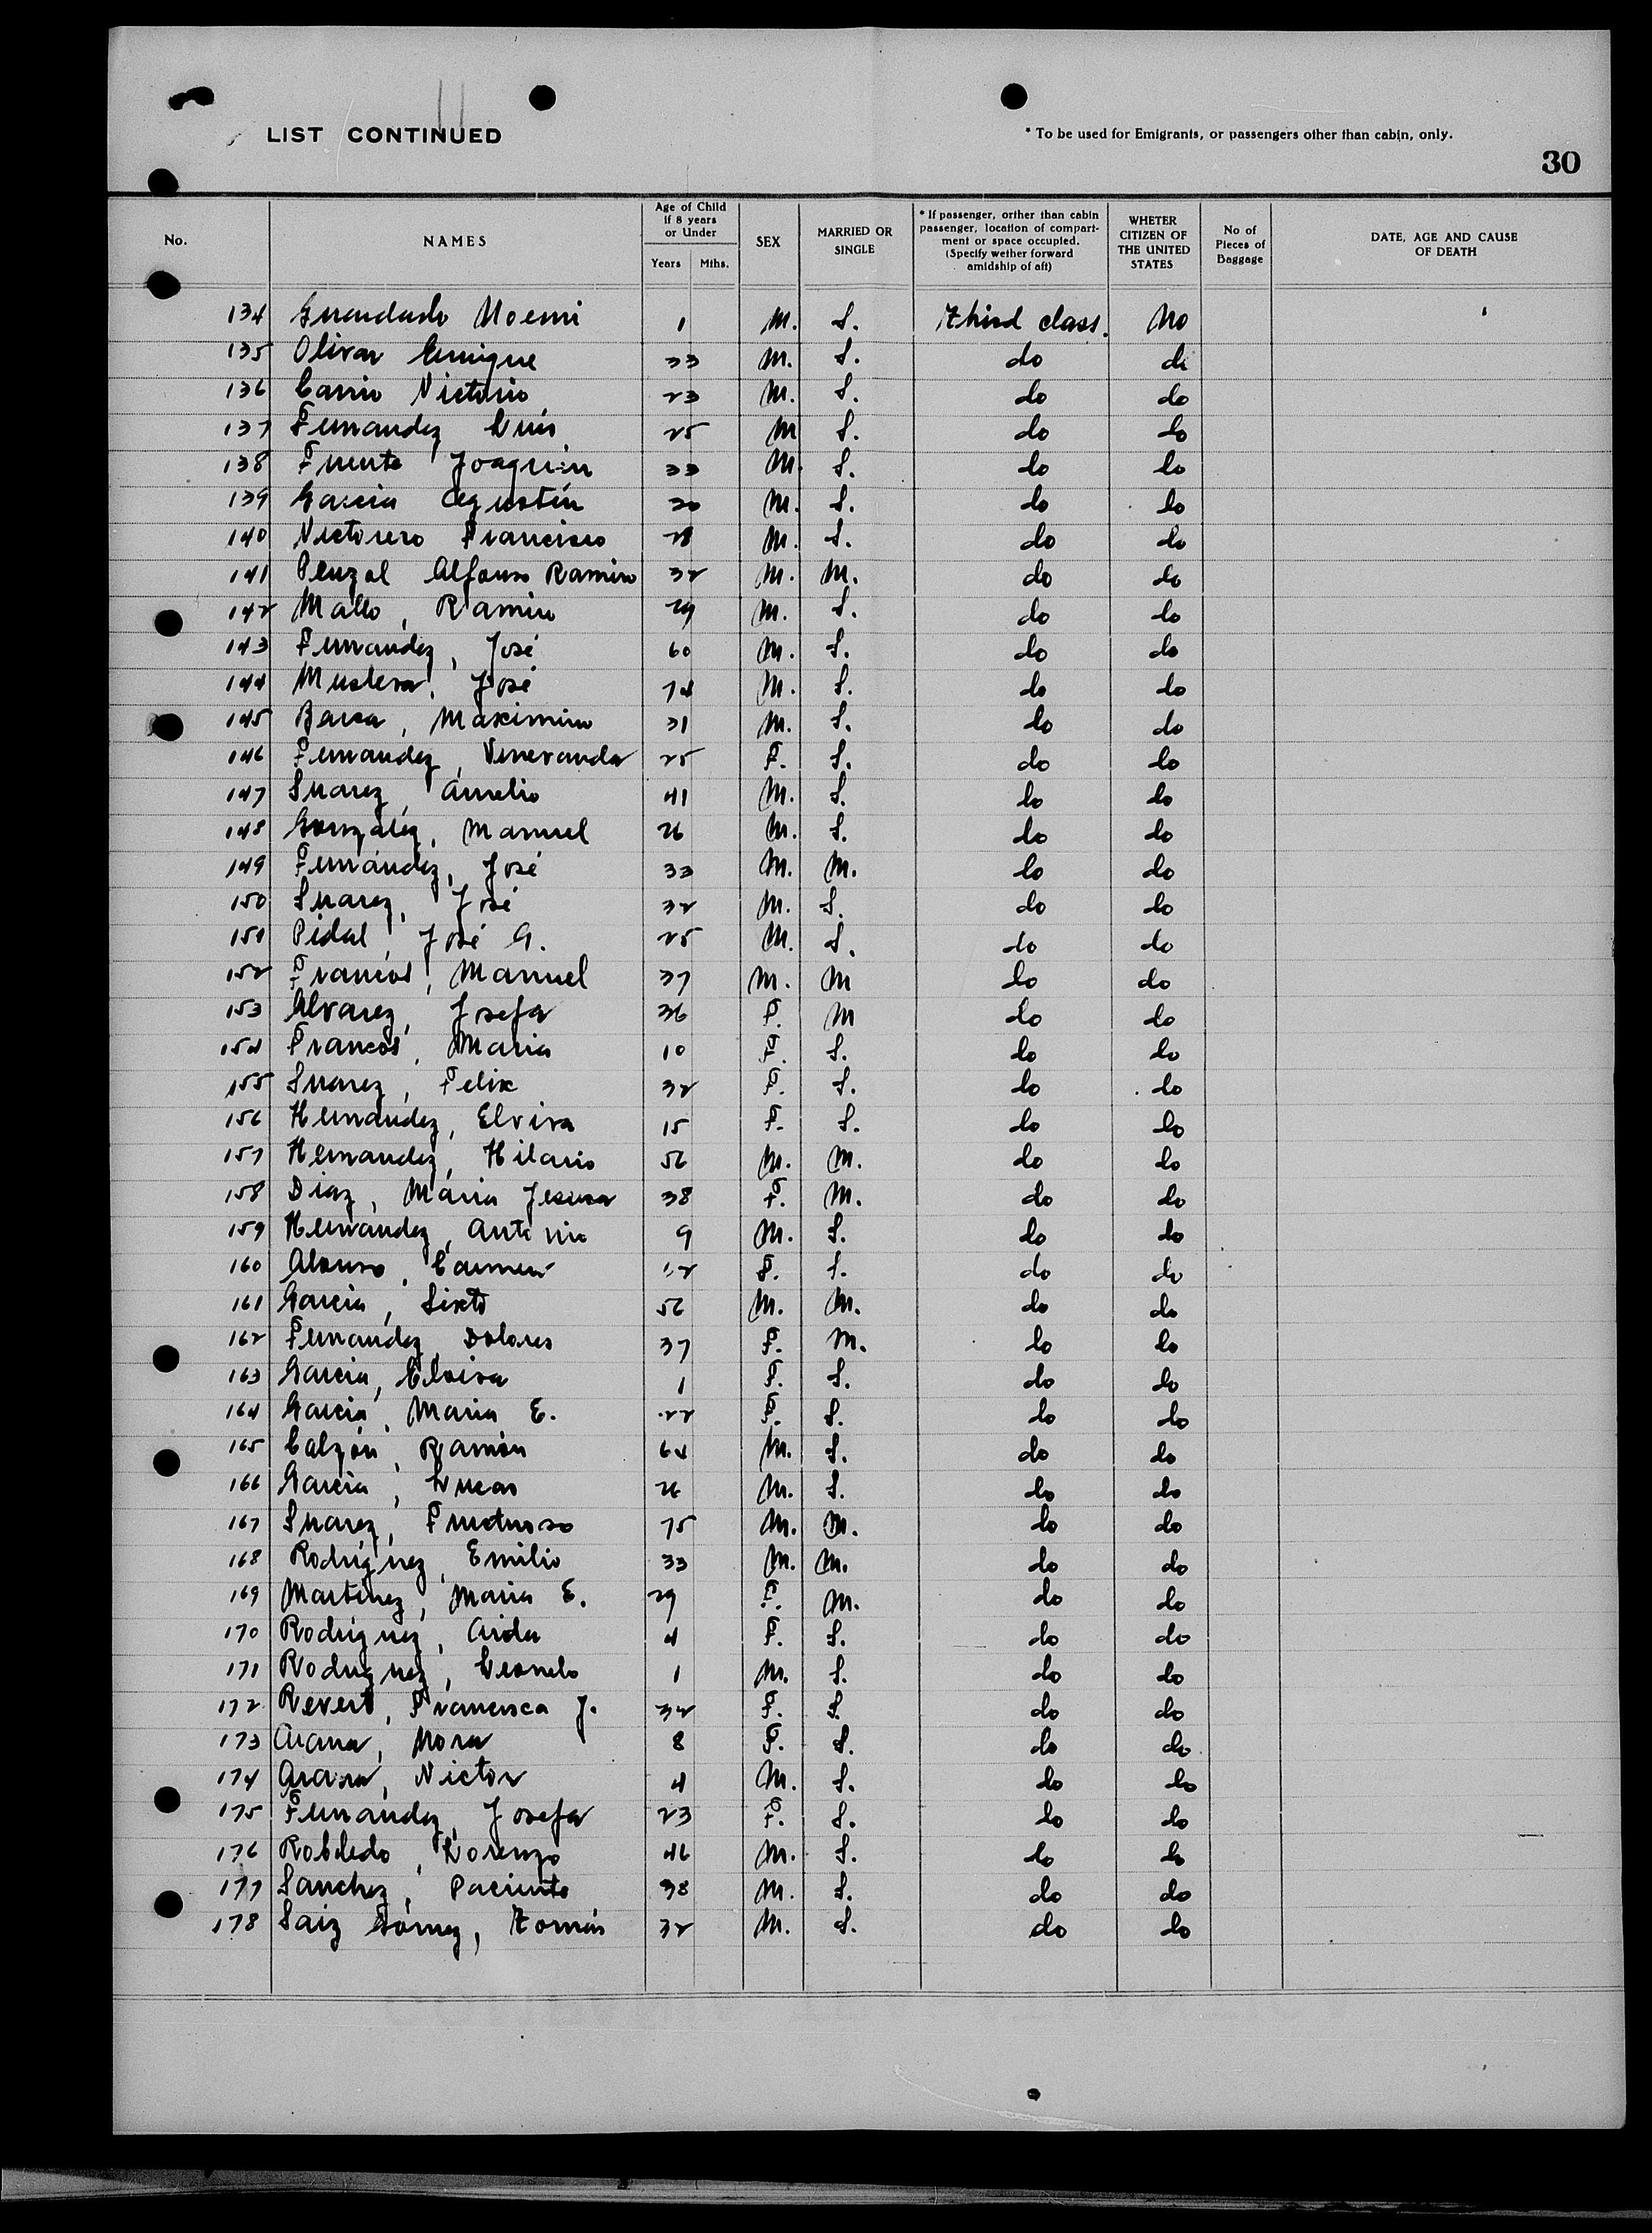 LIST CONTINUED
* To be used for Emigrants, or passengers other than cabin, only.
30
No. NAMES Age of Child if 8 years or Under Years Mths. SEX MARRIED OR SINGLE * If passenger, oriher than cabin passenger, location of compartment or space occupied. (Specify wether forward amidship of aft) WHETER CITIZEN OF THE UNITED STATES No of Pieces of Baggage DATE, AGE AND CAUSE OF DEATH
134 Guardado Noemi 1 M. S. third class. No
135 Olivar Enrique 33 M. S. do do
136 Carrio Victorio 23 M. S. do do
137 Fernandez Luis 25 M S. do do
138 Fuente Joaquin 33 M. S. do do
139 Garcia Agustín 20 M. S. do do
140 Victorero Francisco 28 M. S. do do
141 Penzol Alfonso Ramiro 32 M. M. do do
142 Mallo, Ramiro 29 M. S. do do
143 Fernandez, José 60 M. S. do do
144 José M. S. do do
145 Barca, Maximino 31 M. S. do do
146 Fernandez, Veneranda 25 F. S. do do
147 Suarez, Aurelio 41 M. S. do do
148 González, Manuel 26 M. S. do do
149 Fernández, José 33 M. M. do do
150 Suarez, José 32 M. S. do do
151 Pidal, José A. 25 M. S. do do
152 Francos, Manuel 37 M. M do do
153 Alvarez, Josefa 36 F. M do do
154 Francos, Maria 10 F. S. do do
155 Suarez, Felix 32 F. S. do do
156 Hernández, Elvira 15 F. S. do do
157 Hernandez, Hilario 56 M. M. do do
158 Diaz, Maria Jesusa 38 F. M. do do
159 Hernandez, Antonio 9 M. S. do do
160 Alonso, Carmen 12 F. S. do do
161 Garcia, Sixto 56 M. M. do do
162 Fernandez, Dolores 37 F. M. do do
163 Garcia, Eloisa 1 F. S. do do
164 Garcia, Maria E. 22 F. S. do do
165 Calzón, Ramón 64 M. S. do do
166 Garcia, Lucas 26 M. S. do do
167 Suarez, Fructuoso 75 M. M. do do
168 Rodriguez, Emilio 33 M. M. do do
169 Martinez, Maria E. 29 F. M. do do
170 Rodriguez, Aida 4 F. S. do do
171 Rodriguez, Leonelo 1 M. S. do do
172 Revert, Francisca J. 32 F. S. do do
173 Arana, Nora 8 F. S. do do
174 Arana, Victor 4 M. S. do do
175 Fernández, Josefa 23 F. S. do do
176 Robledo, Lorenzo 46 M. S. do do
177 Sanchez, Paciente 38 M. S. do do
178 Saiz Gómez, Tomás 32 M. S. do do